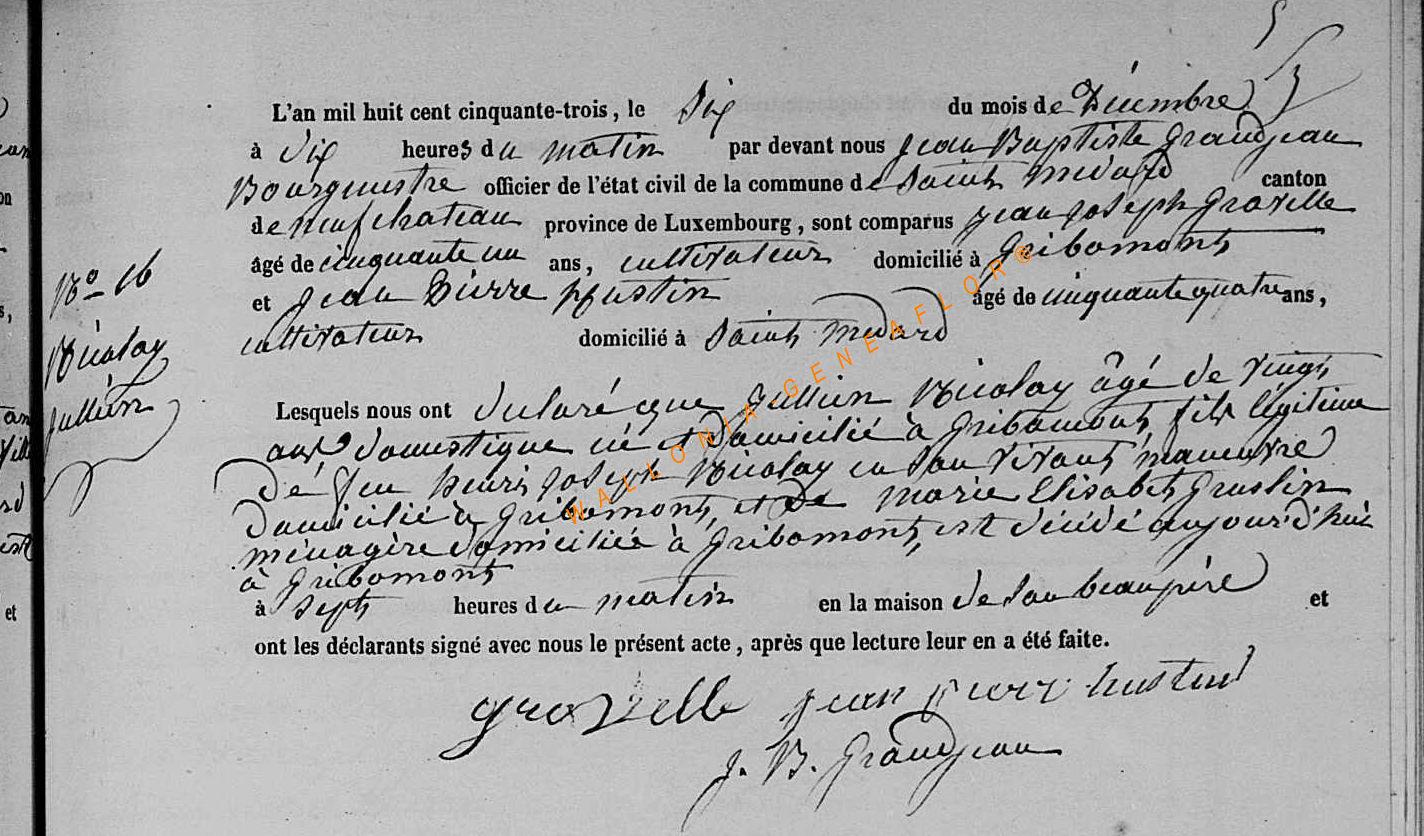 L'an mil huit cent cinquante-trois, le Dix du mois de Décembre
à Dix heures du matin par devant nous Jean Baptiste Grandjean
Bourgmestre officier de l'état civil de la commune de Saint Médard canton
de neufchateau province de Luxembourg, sont comparus Jean Joseph Gravelle
âgé de cinquante un ans, cultivateur domicilié à Gribomont
et Jean Pierre hustin âgé de cinquante quatre ans,
cultivateur domicilié à Saint Médard
N° 16
Nicolay
Jullien
Lesquels nous ont déclaré que Jullien Nicolay âgé de vingt
ans domestique né et domicilié à Gribomont, fils légitime
de feu henri joseph Nicolay en son vivant manœuvre
domicilié à Gribomont, et de marie Elisabeth
ménagère domiciliée à Gribomont, est décédé aujourd'hui
à Gribomont
à sept heures du matin en la maison de son beaupère et
ont les déclarants signé avec nous le présent acte, après que lecture leur en a été faite.
gravelle jean pierre hustin
J. B. Grandjean
WALLONIA-GENEAFLOR©